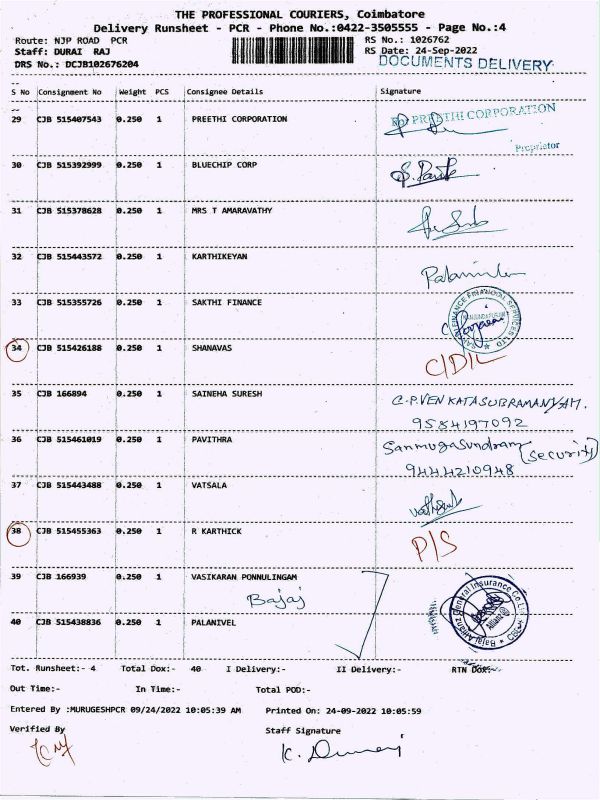 THE PROFESSIONAL COURIERS, Coimbatore
Delivery Runsheet - PCR - Phone No.:0422-3505555 - Page No.:4
Route: NJP ROAD PCR
RS No.: 1026762
Staff: DURAI RAJ
RS Date: 24-Sep-2022
DRS No.: DCJB102676204
DOCUMENTS DELIVERY
S No Consignment No Weight PCS Consignee Details Signature
29 CJB 515407543 0.250 1 PREETHI CORPORATION
For PREETHI CORPORATION
Proprietor
30 CJB 515392999 0.250 1 BLUECHIP CORP
31 CJB 515378628 0.250 1 MRS T AMARAVATHY
32 CJB 515443572 0.250 1 KARTHIKEYAN
33 CJB 515355726 0.250 1 SAKTHI FINANCE
34 CJB 515426188 0.250 1 SHANAVAS C/D/L
35 CJB 166894 0.250 1 SAINEHA SURESH C.P.VENKATASUBRAMANYAM.
9584197092
36 CJB 515461019 0.250 1 PAVITHRA Sanmugasundram (security)
9444210948
37 CJB 515443488 0.250 1 VATSALA
38 CJB 515455363 0.250 1 R KARTHICK P/S
39 CJB 166939 0.250 1 VASIKARAN PONNULINGAM
Bajaj
Bajaj Allianz General Insurance Co Ltd
Allianz
40 CJB 515438836 0.250 1 PALANIVEL
Tot. Runsheet:- 4 Total Dox:- 40 I Delivery:- II Delivery:- RTN Dox:-
Out Time:- In Time:- Total POD:-
Entered By :MURUGESHPCR 09/24/2022 10:05:39 AM Printed On: 24-09-2022 10:05:59
Verified By Staff Signature